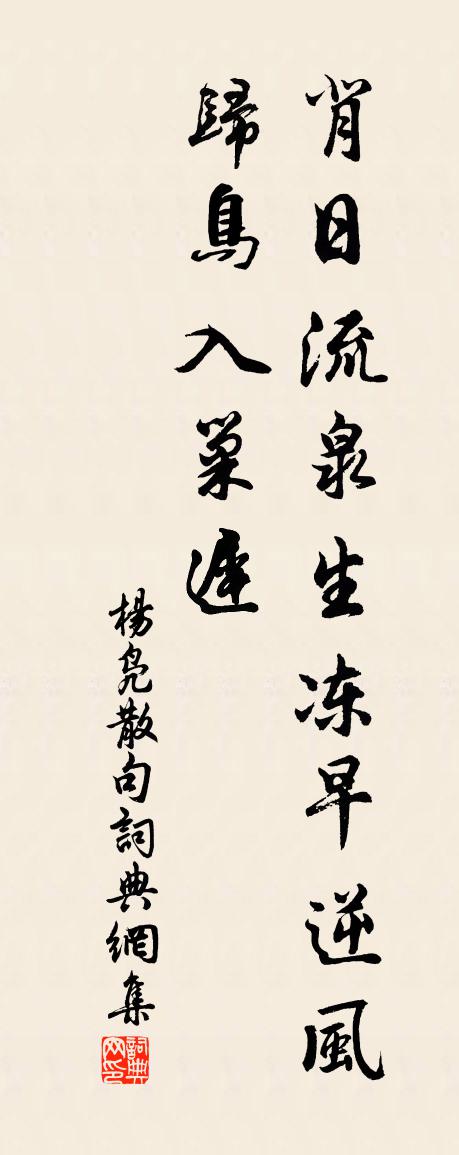 背日流泉生冻早逆風
歸鳥入巢遲
楊凫散句詞典網集
詞典网印